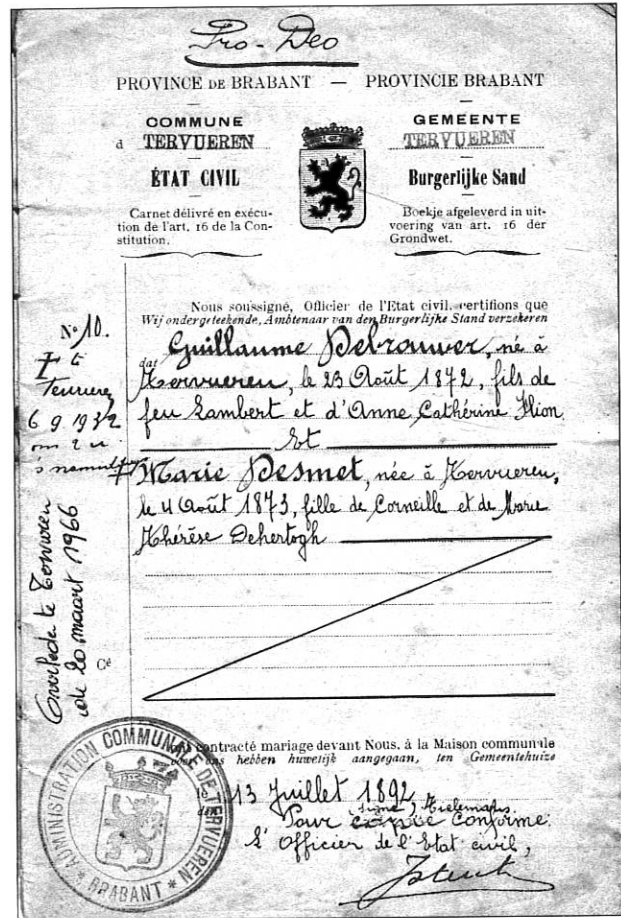 Pro-Deo
PROVINCE DE BRABANT — PROVINCIE BRABANT
COMMUNE
à TERVUEREN
ÉTAT CIVIL
Carnet délivré en exécu-
tion de l'art. 16 de la Con-
stitution.
GEMEENTE
TERVUEREN
Burgerlijke Sand
Boekje afgeleverd in uit-
voering van art. 16 der
Grondwet.
Nous soussigné, Officier de l'Etat civil, certifions que
Wij ondergeteekende, Ambtenaar van den Burgerlijke Stand verzekeren
dat Guillaume Debrouwer, né à
Tervueren, le 23 Août 1872, fils de
feu Lambert et d'Anne Cathérine
Et
Marie Desmet, née à Tervueren,
le 4 Août 1873, fille de Corneille et de Marie
Thérèse Dehertogh
N° 10.
6 9 1932
om 2 u
Overleden te Tervuren
de 20 maart 1966
Cé
ont contracté mariage devant Nous, à la Maison communale
voor ons hebben huwelijk aangegaan, ten Gemeentehuize
13 Juillet 1892
Pour copie conforme.
L'Officier de l'Etat civil,
ADMINISTRATION COMMUNALE DE TERVUEREN
* BRABANT *